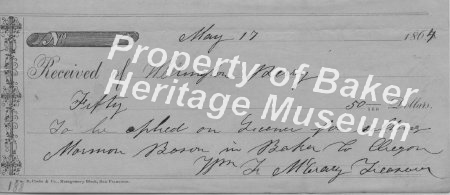 May 17 1864
Received of
Property of Baker
Heritage Museum
Fifty 50/100 Dollars
To be aplied on
Mormon Basin in Baker Co Oregon
Wm F McCrary Treasurer
& Co., Montgomery Block, San Francisco.